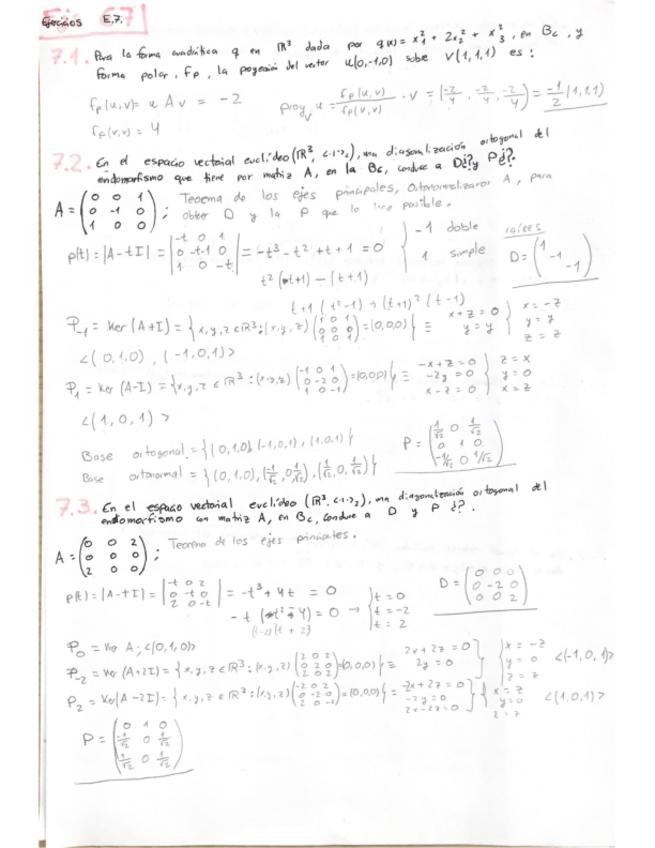 Ejercicios E.7.
7.1. Para la forma cuadrática q en ℝ³ dada por q(x) = x₁² + 2x₂² + x₃², en Bc, y
forma polar, fp, la proyección del vector u(0,-1,0) sobre v(1,1,1) es:
fp(u,v) = u A v = -2
proy_v u = fp(u,v)/fp(v,v) · v = (-2/4, -2/4, -2/4) = -1/2 (1,1,1)
fp(v,v) = 4
7.2. En el espacio vectorial euclídeo (ℝ³, <·,·>₂), una diagonalización ortogonal del
endomorfismo que tiene por matriz A, en la Bc, conduce a D¿? y P¿?.
A = (0 0 1 / 0 -1 0 / 1 0 0) ; Teorema de los ejes principales, Ortonormalizaron A, para
obter D y la P que lo hace posible.
p(t) = |A-tI| = |-t 0 1 / 0 -t-1 0 / 1 0 -t| = -t³ - t² + t + 1 = 0 { -1 doble / 1 simple
raíces
D = (1 / -1 / -1)
t+1 (t²-1) → (t+1)² (t-1)
P₋₁ = Ker (A+I) = {x,y,z ∈ ℝ³ : (x,y,z) (1 0 1 / 0 0 0 / 1 0 1) = (0,0,0)} ≡ x+z = 0 / y = y } x = -z / y = y / z = z
<(0,1,0), (-1,0,1)>
P₁ = Ker (A-I) = {x,y,z ∈ ℝ³ : (x,y,z) (-1 0 1 / 0 -2 0 / 1 0 -1) = (0,0,0)} ≡ -x+z = 0 / -2y = 0 / x-z = 0 } z = x / y = 0 / x = z
<(1,0,1)>
Base ortogonal = {(0,1,0), (-1,0,1), (1,0,1)}
Base ortonormal = {(0,1,0), (-1/√2, 0, 1/√2), (1/√2, 0, 1/√2)}
P = (1/√2 0 1/√2 / 0 1 0 / -1/√2 0 1/√2)
7.3. En el espacio vectorial euclídeo (ℝ³, <·,·>₂), una diagonalización ortogonal del
endomorfismo con matriz A, en Bc, conduce a D y P ¿?.
A = (0 0 2 / 0 0 0 / 2 0 0) ; Teorema de los ejes principales.
p(t) = |A-tI| = |-t 0 2 / 0 -t 0 / 2 0 -t| = -t³ + 4t = 0
-t (t² - 4) = 0 → { t = 0 / t = -2 / t = 2
(t-2)(t+2)
D = (0 0 0 / 0 -2 0 / 0 0 2)
P₀ = Ker A = <(0,1,0)>
P₋₂ = Ker (A+2I) = {x,y,z ∈ ℝ³ : (x,y,z) (2 0 2 / 0 2 0 / 2 0 2) = (0,0,0)} ≡ 2x+2z = 0 / 2y = 0 } x = -z / y = 0 / z = z <(-1,0,1)>
P₂ = Ker (A-2I) = {x,y,z ∈ ℝ³ : (x,y,z) (-2 0 2 / 0 -2 0 / 2 0 -2) = (0,0,0)} ≡ -2x+2z = 0 / -2y = 0 / 2x-2z = 0 } x = z / y = 0 / z = z <(1,0,1)>
P = (0 1 0 / -1/√2 0 1/√2 / 1/√2 0 1/√2)